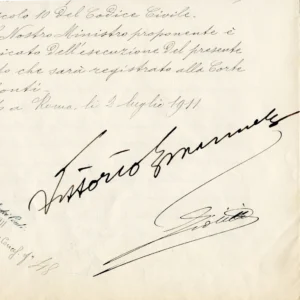 colo 10 del Codice Civile.
l Nostro Ministro proponente è
ricato dell'esecuzione del presente
to che sarà registrato alla Corte
Conti.
to a Roma, li 2 luglio 1911
Vittorio Emanuele
Giolitti
48